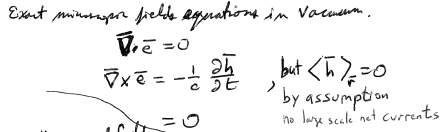 Exact microscopic fields equations in Vacuum.
∇̄·ē = 0
∇̄×ē = -1/c ∂h̄/∂t , but <h̄>_r̄ = 0
by assumption
no large scale net currents
= 0